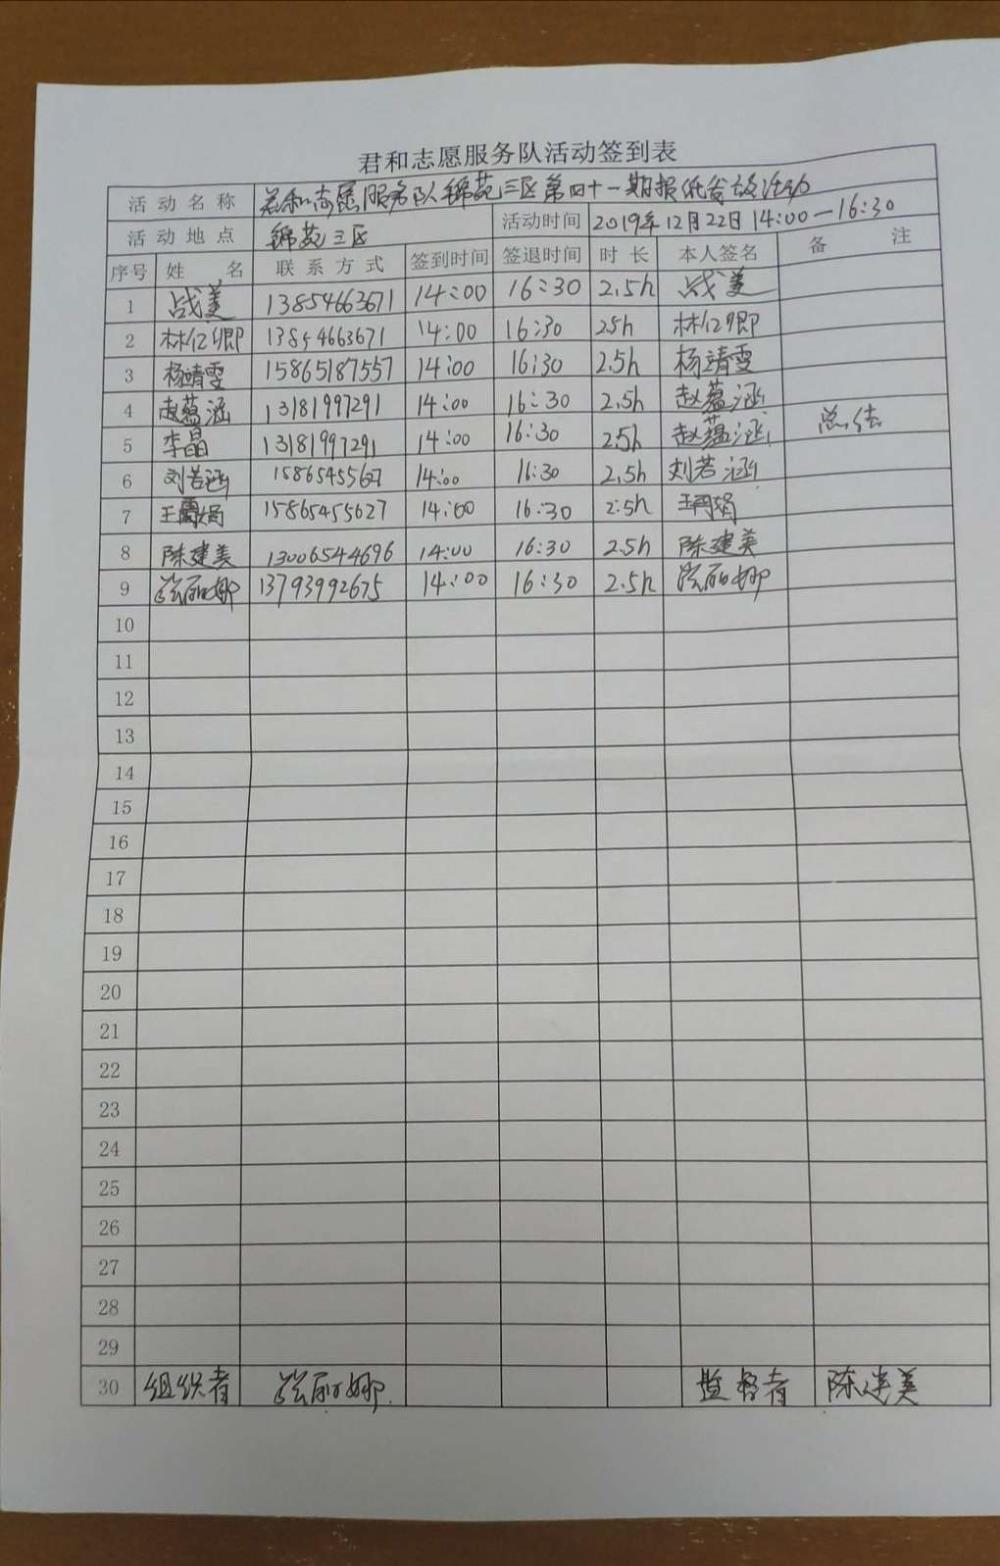 君和志愿服务队活动签到表
活动名称 君和志愿服务队锦苑三区第四十一期报纸发放活动
活动地点 锦苑三区 活动时间 2019年12月22日14:00—16:30
序号 姓名 联系方式 签到时间 签退时间 时长 本人签名 备注
1 战美 13854663671 14:00 16:30 2.5h 战美
2 林仁卿 13854663671 14:00 16:30 25h 林仁卿
3 杨靖雯 15865187557 14:00 16:30 2.5h 杨靖雯
4 赵蕴涵 13181997291 14:00 16:30 2.5h 赵蕴涵
5 李晶 13181997291 14:00 16:30 25h 赵蕴涵 总结
6 刘若涵 15865455627 14:00 16:30 2.5h 刘若涵
7 王 娟 15865455627 14:00 16:30 2.5h 王 娟
8 陈建美 13006544696 14:00 16:30 2.5h 陈建美
9 张丽娜 13793992675 14:00 16:30 2.5h 张丽娜
10
11
12
13
14
15
16
17
18
19
20
21
22
23
24
25
26
27
28
29
30 组织者 张丽娜 监督者 陈建美